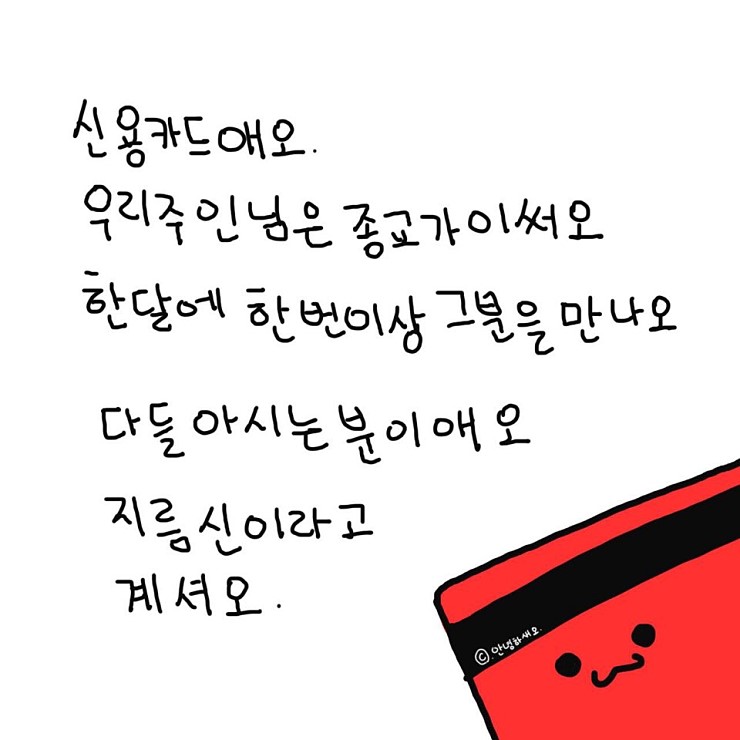 신용카드애오.
우리주인님은 종교가이써오
한달에 한번이상 그분을 만나오
다들 아시는 분이애오
지름신이라고
계셔오.
ⓒ.안녕하새오.